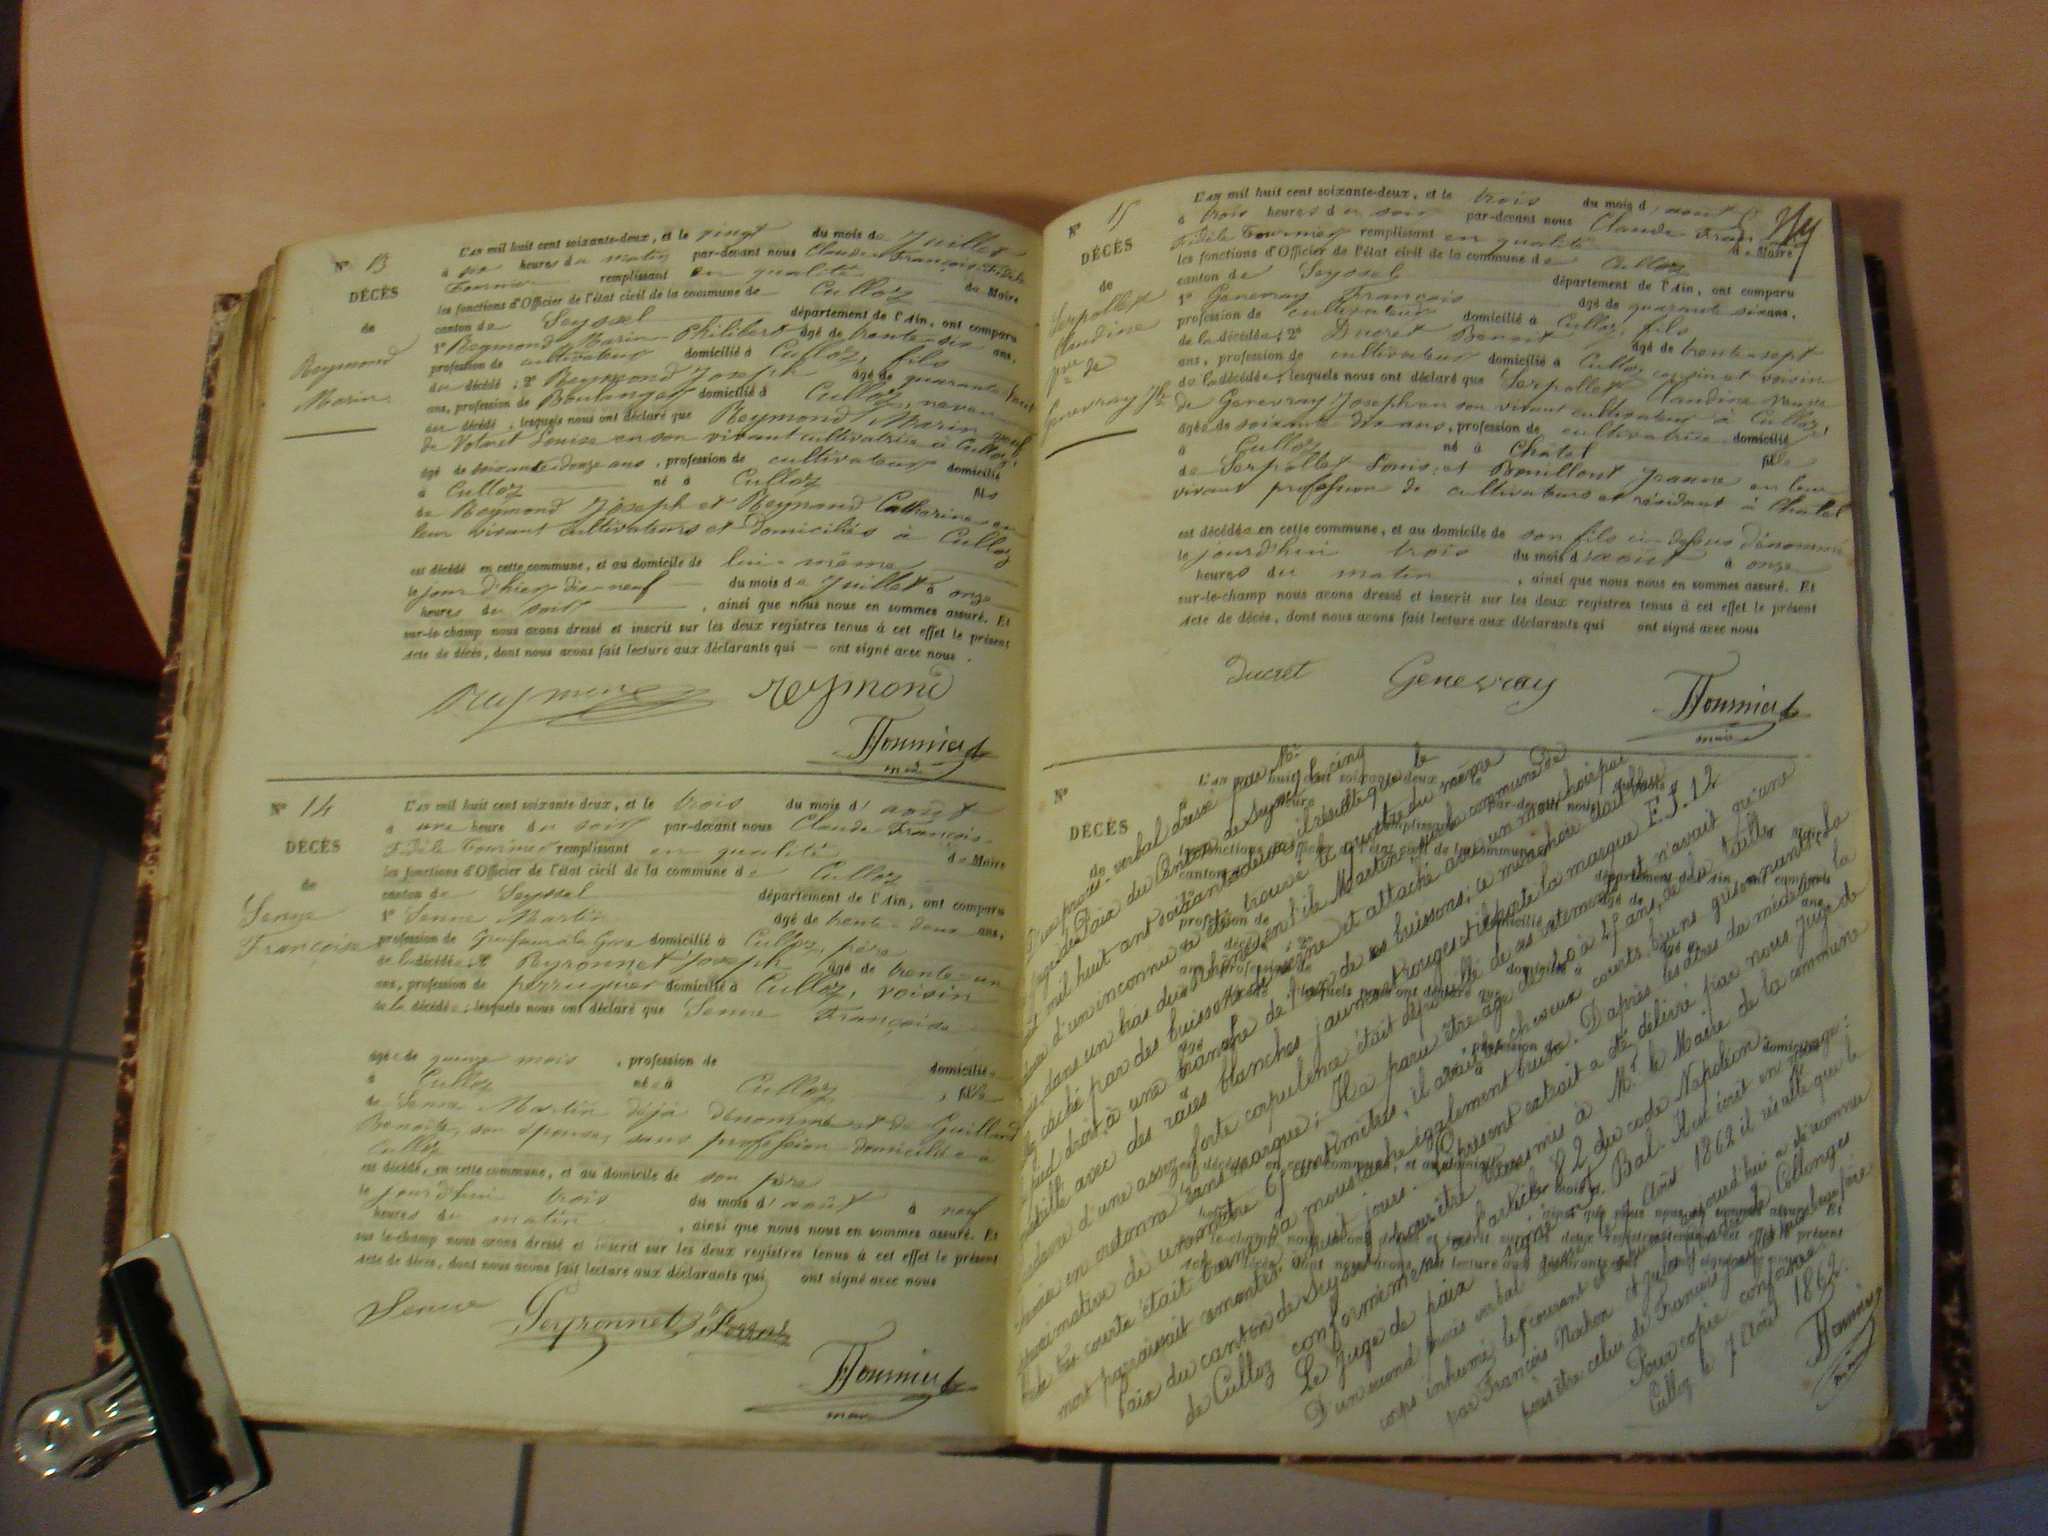 N° 13
DÉCÈS
de
Reymond
Marin
L'an mil huit cent soixante-deux, et le vingt du mois de Juillet
à six heures du matin par-devant nous Claude François Fidèle
Fournier remplissant en qualité de Maire
les fonctions d'Officier de l'état civil de la commune de Culloz
canton de Seyssel département de l'Ain, ont comparu
1° Reymond Marin Philibert âgé de trente-six ans,
profession de cultivateur domicilié à Culloz, fils
du décédé ; 2° Reymond Joseph âgé de quarante huit
ans, profession de Boulanger domicilié à Culloz, neveu
du décédé ; lesquels nous ont déclaré que Reymond Marin veuf
de Louise en son vivant cultivatrice à Culloz,
âgé de soixante douze ans, profession de cultivateur domicilié
à Culloz né à Culloz fils
de Reymond Joseph et Reynaud Catharine en
leur vivant cultivateurs et domiciliés à Culloz
est décédé en cette commune, et au domicile de lui-même
le jour d'hier dix-neuf du mois de Juillet à onze
heures du soir, ainsi que nous nous en sommes assuré. Et
sur-le-champ nous avons dressé et inscrit sur les deux registres tenus à cet effet le présent
Acte de décès, dont nous avons fait lecture aux déclarants qui — ont signé avec nous.
Reymond
Fournier
maire
N° 14
DÉCÈS
de
Senne
Françoise
L'an mil huit cent soixante deux, et le trois du mois d'août
à une heure du soir par-devant nous Claude François
Fidèle Fournier remplissant en qualité de Maire
les fonctions d'Officier de l'état civil de la commune de Culloz
canton de Seyssel département de l'Ain, ont comparu
1° Senne Martin âgé de trente-deux ans,
profession de domicilié à Culloz, père
de la décédée 2° Peyronnet Joseph âgé de trente-un
ans, profession de perruquier domicilié à Culloz, voisin
de la décédée ; lesquels nous ont déclaré que Senne Françoise
âgée de quinze mois, profession de domiciliée
à Culloz née à Culloz, fille
de Senne Martin déjà dénommé et de Guilland
Benoite, son épouse, sans profession domiciliée à
Culloz
est décédé, en cette commune, et au domicile de son père
le jourd'hui trois du mois d'août à neuf
heures du matin, ainsi que nous nous en sommes assuré. Et
sur le-champ nous avons dressé et inscrit sur les deux registres tenus à cet effet le présent
Acte de décès, dont nous avons fait lecture aux déclarants qui ont signé avec nous
Senne Peyronnet
Fournier
maire
N° 15
DÉCÈS
de
Serpollet
Claudine
de
Genevray
L'an mil huit cent soixante-deux, et le trois du mois d'août
à trois heures du soir par-devant nous Claude François
Fidèle Fournier remplissant en qualité de Maire
les fonctions d'Officier de l'état civil de la commune de Culloz
canton de Seyssel département de l'Ain, ont comparu
1° Genevray François âgé de quarante six ans,
profession de cultivateur domicilié à Culloz, fils
de la décédée ; 2° Ducret Benoit âgé de trente-sept
ans, profession de cultivateur domicilié à Culloz, cousin et voisin
de la décédée, lesquels nous ont déclaré que Serpollet Claudine veuve
de Genevray Joseph en son vivant cultivateur à Culloz,
âgée de soixante dix ans, profession de cultivatrice domicilié
à Culloz né à Châtel fille
de Serpollet Louis et Bouillout Jeanne en leur
vivant profession de cultivateurs et résidant à Chatel
est décédée en cette commune, et au domicile de son fils ci-dessus dénommé
le jourd'hui trois du mois d'août à onze
heures du matin, ainsi que nous nous en sommes assuré. Et
sur-le-champ nous avons dressé et inscrit sur les deux registres tenus à cet effet le présent
Acte de décès, dont nous avons fait lecture aux déclarants qui ont signé avec nous
Ducret Genevray
Fournier
maire
N°
DÉCÈS
de
D'un procès-verbal dressé par Mr
Juge de Paix du Canton de Seyssel le cinq
août mil huit cent soixante deux il résulte que le
d'un inconnu a été trouvé le quatre du même
mois dans un bras du Rhône, en l'île sur la commune de
caché par des buissons et attaché avec un mouchoir par
le pied droit, à une branche de l'un de ces buissons ; ce mouchoir
avec des raies blanches jaunes et rouges et il porte la marque E. J. 12
cadavre d'une assez forte corpulence était dépouillé de ses vêtements et n'avait qu'une
chemise en cretonne sans marque ; Il a paru être âgé de à ans, de la taille
approximative de un mètre 65 centimètres, il avait les cheveux courts bruns grisonnants, la
barbe très courte était brune, sa moustache également brune. D'après les dires du médecin la
mort paraissait remonter à huit jours. Le présent extrait a été délivré par nous Juge de
Paix du canton de Seyssel pour être transmis à Mr. le Maire de la commune
de Culloz conformément à l'article 82 du code Napoléon.
Le Juge de paix signé Bal.
D'un second procès verbal dressé le 7 Août 1862 il résulte que le
corps inhumé le courant et aujourd'hui a été reconnu
par François Nachon et de Collonges
pour être celui de François
Pour copie conforme
Culloz le 7 Août 1862.
Fournier
maire